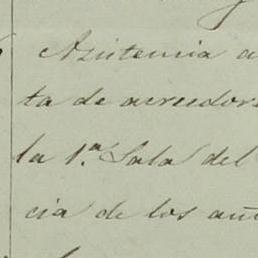 Asistencia a
ta de acreedor
la 1ª Sala del
cia de los au